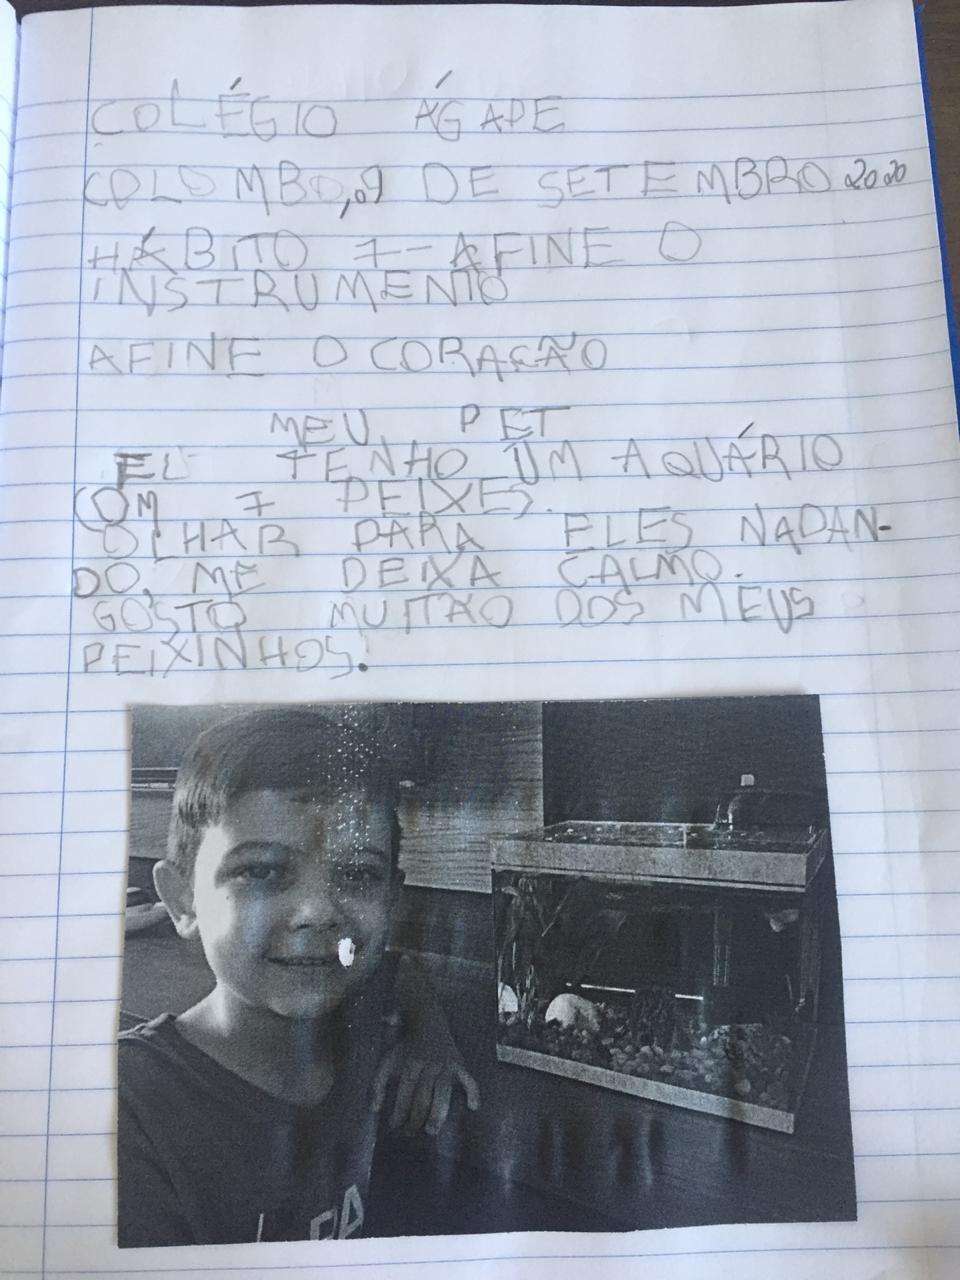 COLÉGIO ÁGAPE
COLOMBO,09 DE SETEMBRO 2020
HÁBITO 7-AFINE O
INSTRUMENTO
AFINE O CORAÇÃO
MEU PET
EU TENHO UM AQUÁRIO
COM 7 PEIXES.
OLHAR PARA ELES NADAN-
DO, ME DEIXA CALMO.
GOSTO MUITÃO DOS MEUS
PEIXINHOS!